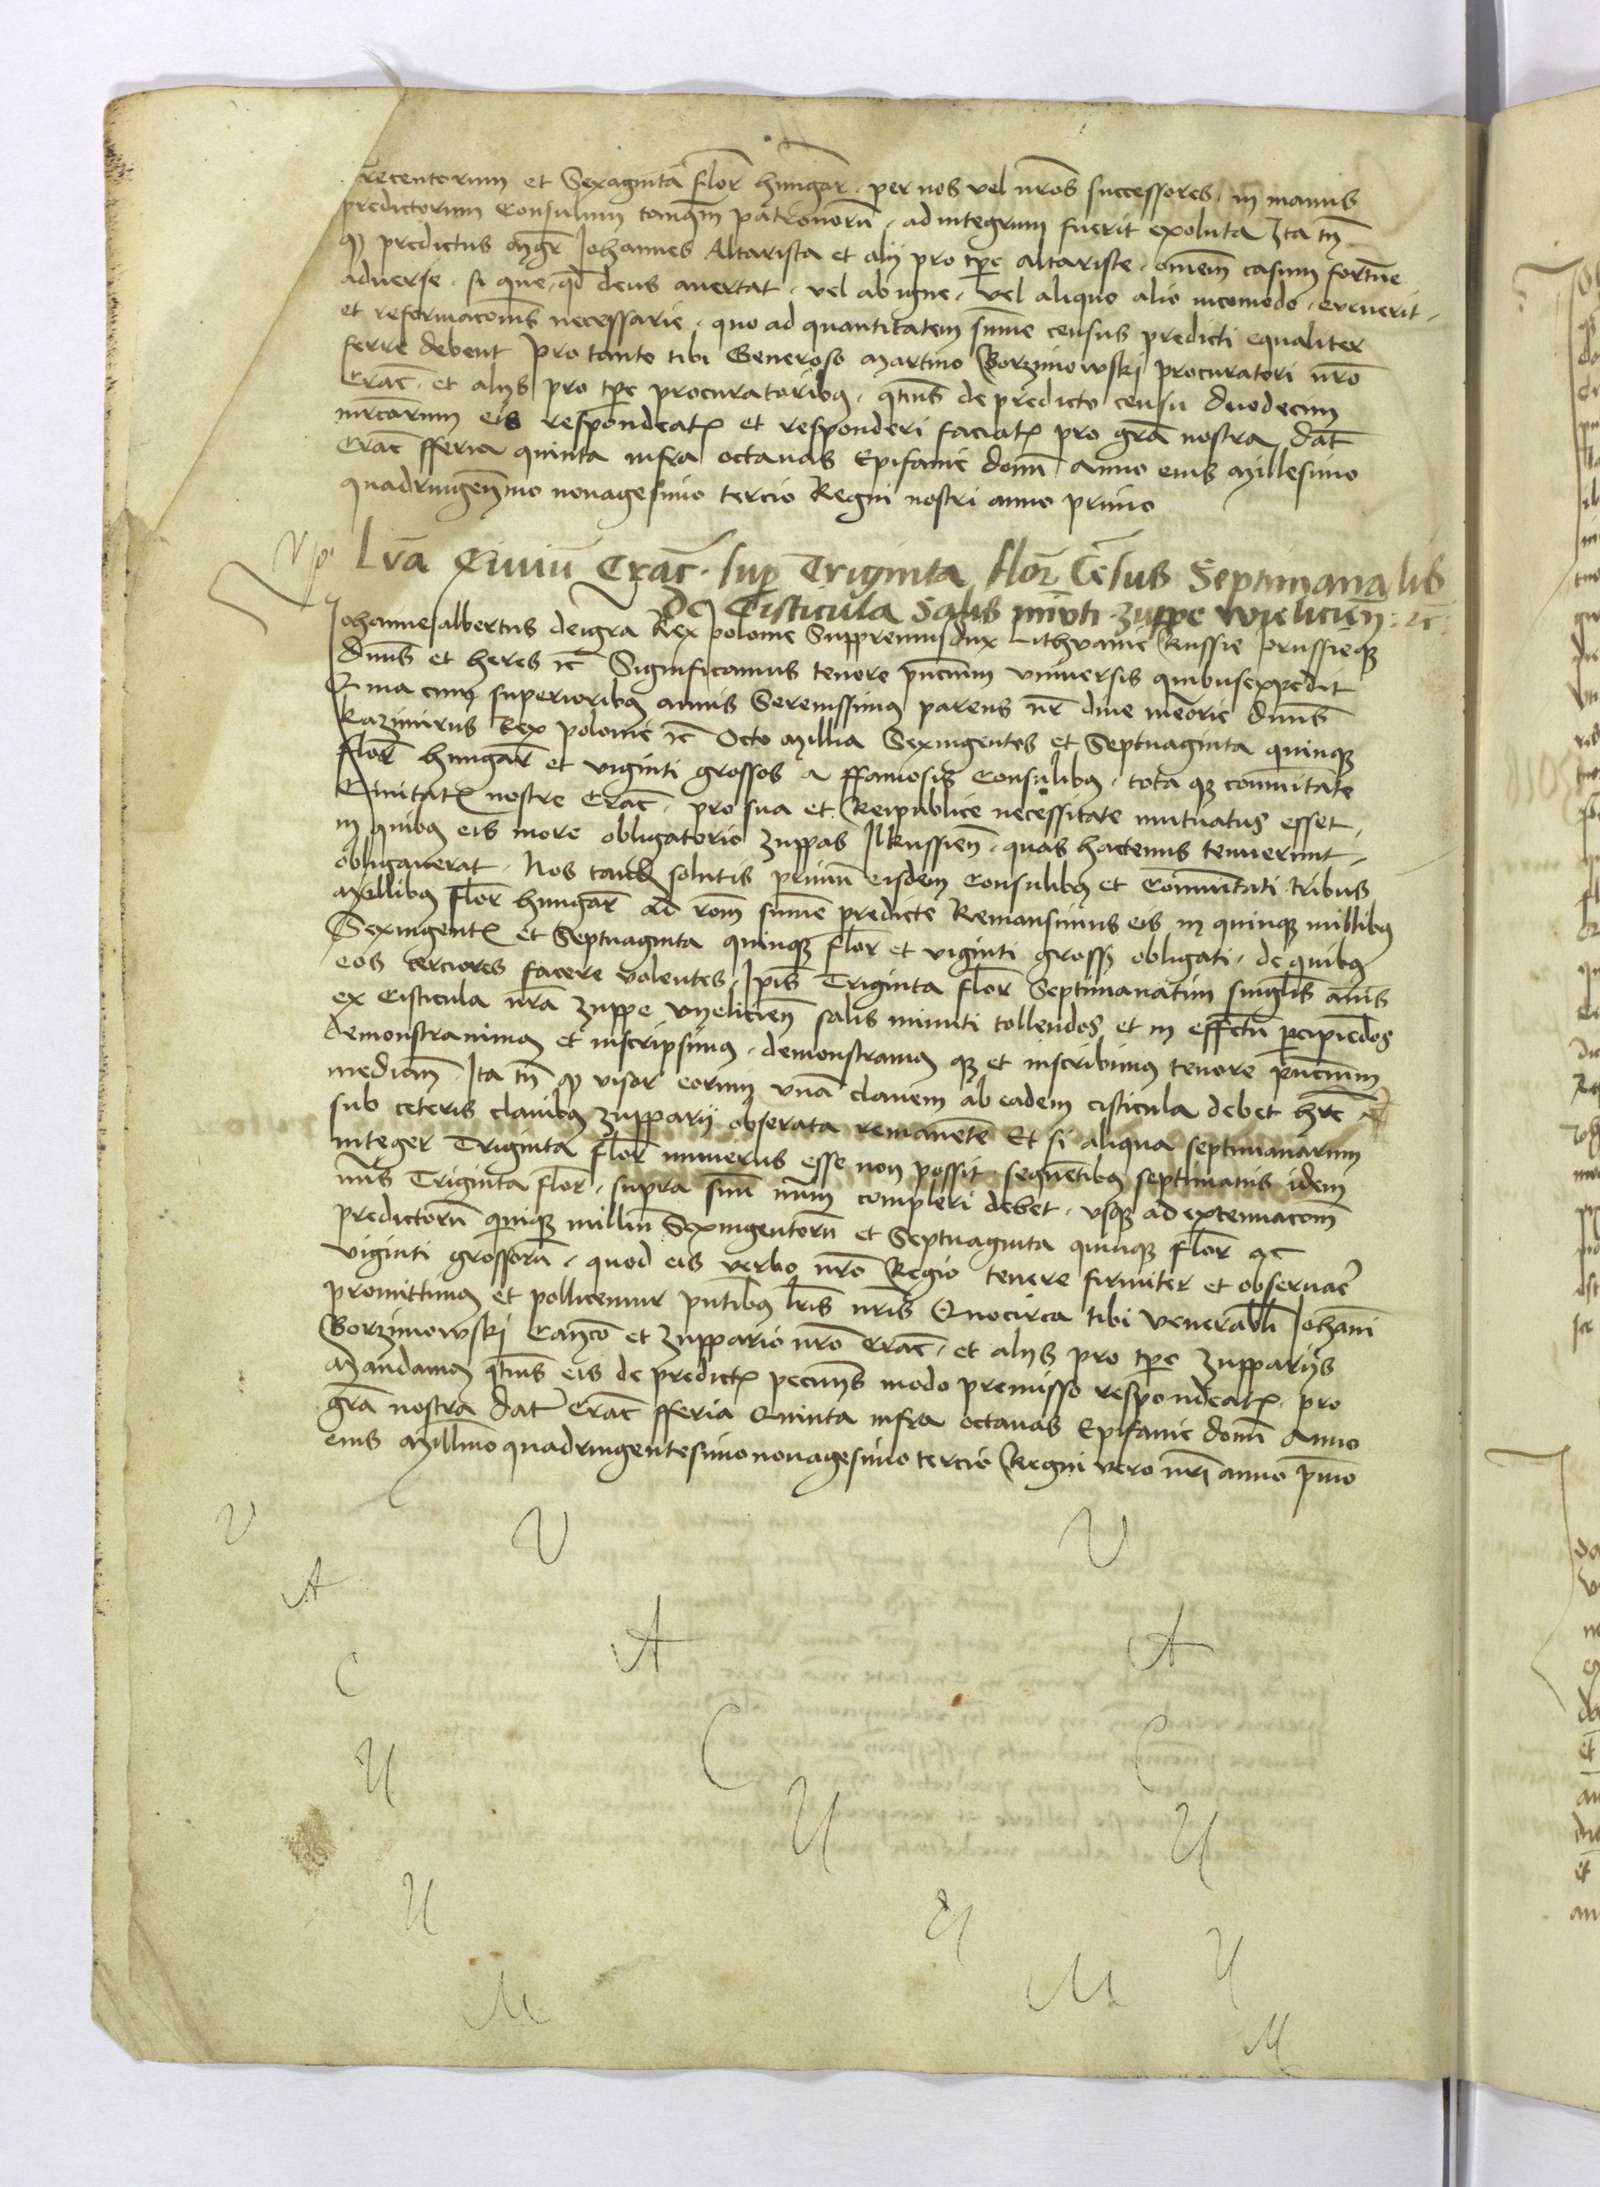 Trecentorum et Sexaginta flor̄ hungar̄ · per nos vel nr̄os successores, in manus
predictorum Consulum tanq̄m patronorū · ad integrum fuerit exoluta Ita tn̄
q predictus mgr̄ Johannes Altarista et alij pro tp̄e altariste · omēm casum fortūe
adverse · si quē, qd̄ deus avertat · vel ab igne, vel aliquo alio incomodo, evenerit,
et reformacōis necessarie, quo ad quantitatem sūme census predicti equaliter
ferre debent Pro tanto tibi Generoso Martino Gorzimowski procuratori nr̄o
Crac̄, et alijs pro tp̄e procuratoribꝫ, qtn̄s de predicto censu duodecim
mr̄carum eis respondeatꝭ et responderi faciatꝭ pro grā nostra dat̄
Crac̄ fferia quinta infra octavas Epifanie domī Anno eius Millesimo
quadringenīmo nonagesimo tercio Regni nostri anno primo
Lr̄a Civiū Crac̄ · sup̄ Triginta flor̄ Cēsus Septimanalis
de Cisticula Salis minuti zuppe Wieliciēn: ꝛc̄
Johannes albertus dei grā Rex polonie Suppremus dux Lithvanie Russie prussieqꝫ
dn̄us et heres ꝛc̄ Significamus tenore pn̄cium universis quibus expedit
Quia cum superioribꝫ annis Serenissimꝫ parens nr̄ dive meōrie dn̄us
Kazimirus Rex polonie ꝛc̄ Octo Millia Sexingentos et Septuaginta quinqꝫ
flor̄ hungar̄ et viginti grossos a ffamosis Consulibꝫ, tota qꝫ comūitate
Civitatꝭ nostre Crac̄, pro sua et Reipublice necessitate mutuatus esset,
in quibꝫ eis more obligatorio zuppas Ilkussiēn, quas hactenus tenuerunt,
obligaverat, Nos tandē solutis primū eisdem Consulibꝫ et Comūitati tribus
Millibꝫ flor̄ hungar̄ ad rōm sūme predicte Remansimus eis in quinqꝫ millibꝫ
Sexingentꝭ et Septuaginta quinqꝫ flor̄ et viginti gross obligati, de quibꝫ
eos cerciores facere volentes, Ip̄is Triginta flor̄ Septimanatim singlis annis
ex Cisticula nr̄a zuppe Vyeliciēn salis minuti tollendos et in effectū percipiēdos
demonstravimꝫ et inscripsimꝫ, demonstramꝫ qꝫ et inscribimꝫ tenore pn̄cium
mediam̄ Ita tn̄ q visor eorum unā clavem ab eadem cisticula debet hr̄e
sub ceteris clavibꝫ zupparij obserata remanētē Et si aliqua septimanarum
integer Triginta flor̄ numerus esse non possit, sequētibꝫ septimanis idem
nūs Triginta flor̄, supra suū nūm compleri debet, vsqꝫ ad extenuacōm
predictorū quinqꝫ milliū Sexingentorū et Septuaginta quinqꝫ flor̄ ac
viginti grossorū, quod eis verbo nr̄o Regio tenere firmiter et observar̄e
promittimꝫ et pollicemur pn̄tibꝫ lr̄is nr̄is Quocirca tibi venerabli Johāni
Gorzimowski Canco et zuppario nr̄o Crac̄, et alijs pro tp̄e zupparijs
Mandamꝫ qtn̄s eis de predictꝭ pecunijs modo premisso respondeatꝭ, pro
grā nostra dat̄ Crac̄ fferia Quinta infra octavas Epifanie domī Anno
eius Millīmo quadringentesimo nonagesimo tercio Regni vero nr̄i anno p̄mo
V V V
A A A
C C C
U U U
U U U
M M M